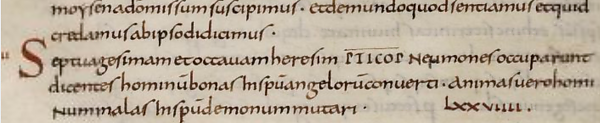 moysen adomissum suscipimus · et de mundo quod sentiamus et quid
credamus ab ipso didicimus ·
Septuagesimam et octauam heresim Neumones occuparunt
dicentes hominū bonas in sp̄u angelorū conuerti · Animas uero homi
num malas in sp̄u demonum mutari · lxxviiii ·